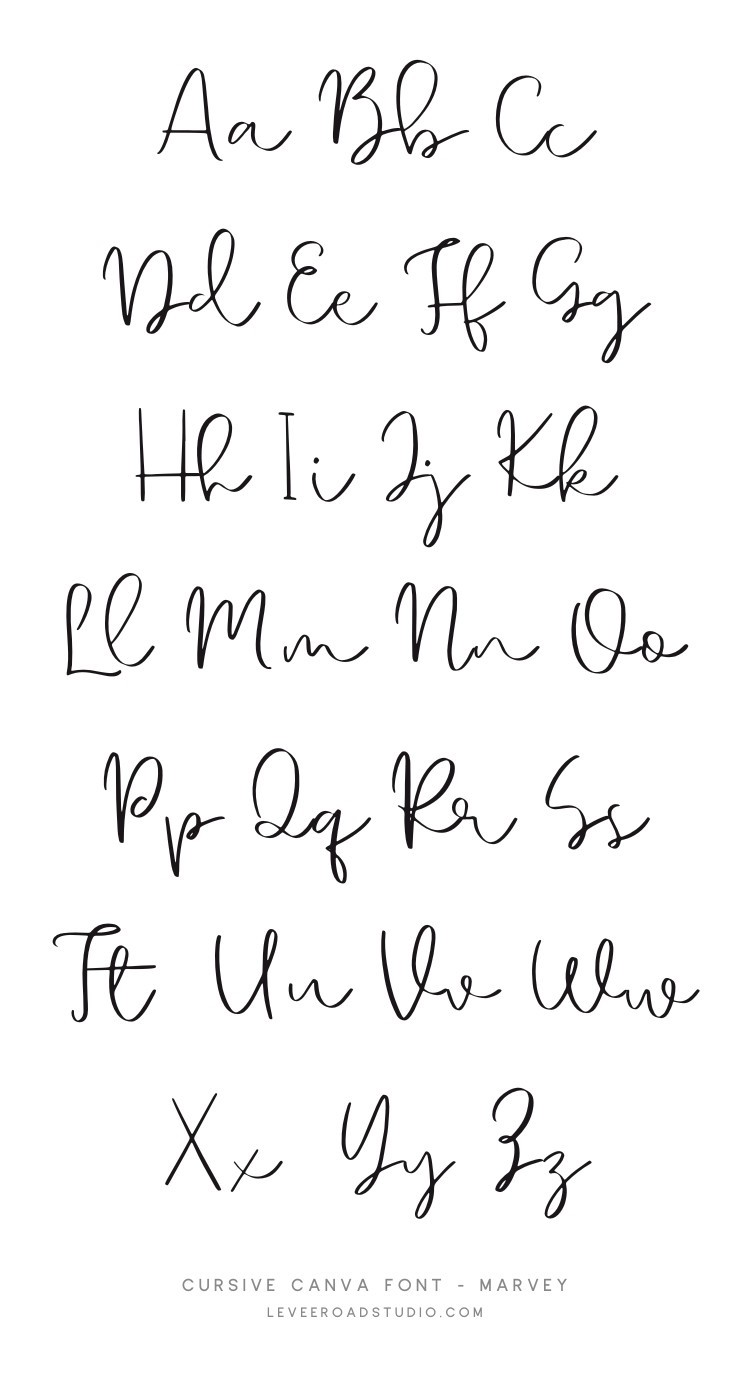 Aa Bb Cc
Dd Ee Ff Gg
Hh Ii Jj Kk
Ll Mm Nn Oo
Pp Qq Rr Ss
Tt Uu Vv Ww
Xx Yy Zz
CURSIVE CANVA FONT - MARVEY
LEVEEROADSTUDIO.COM